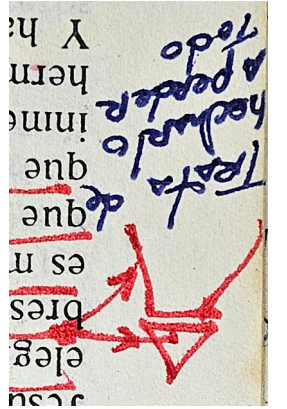 Jesu
eleg
bres
es
que
que
inme
herm
Y ha
Trata de
hecharlo
a perder
Todo